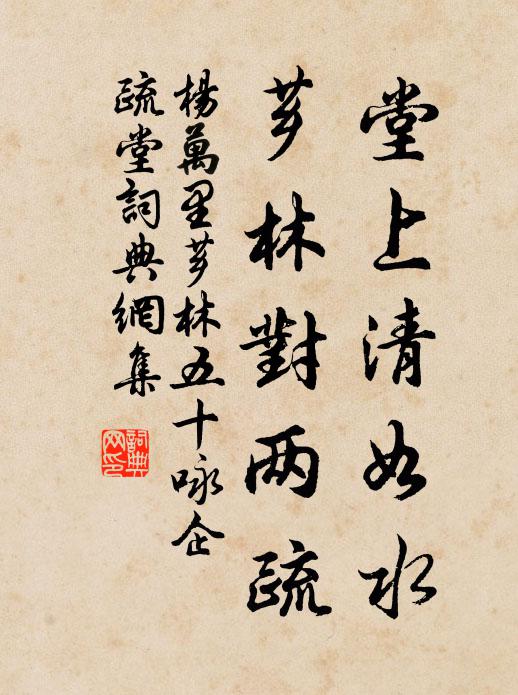 堂上清如水
芗林對两疏
楊萬里芗林五十咏企
疏堂詞典網集
詞典网印